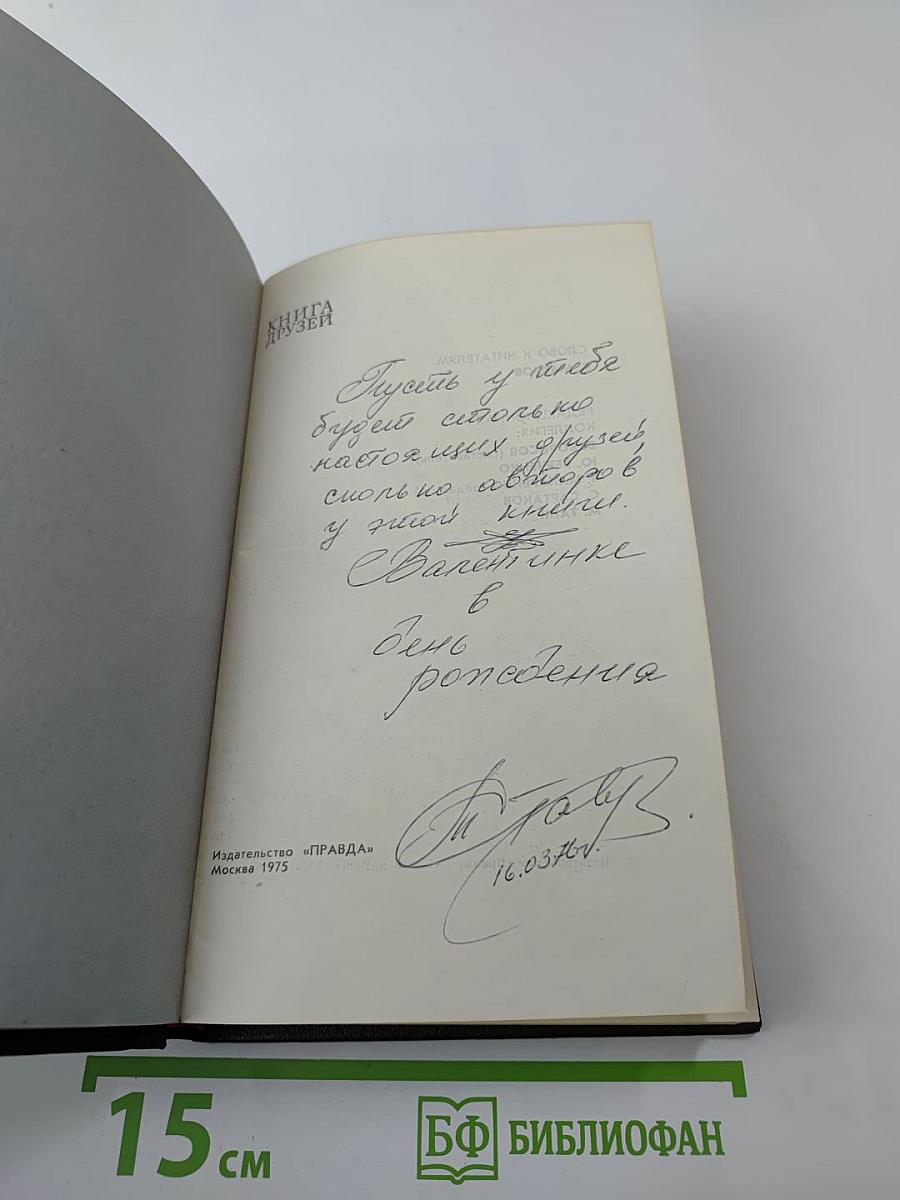 КНИГА
ДРУЗЕЙ
Пусть у тебя
будет столько
настоящих друзей,
сколько авторов
у этой книги.
Валентинке
в
день
рождения
16.03.76 г.
Издательство «ПРАВДА»
Москва 1975
15 см
БФ БИБЛИОФАН